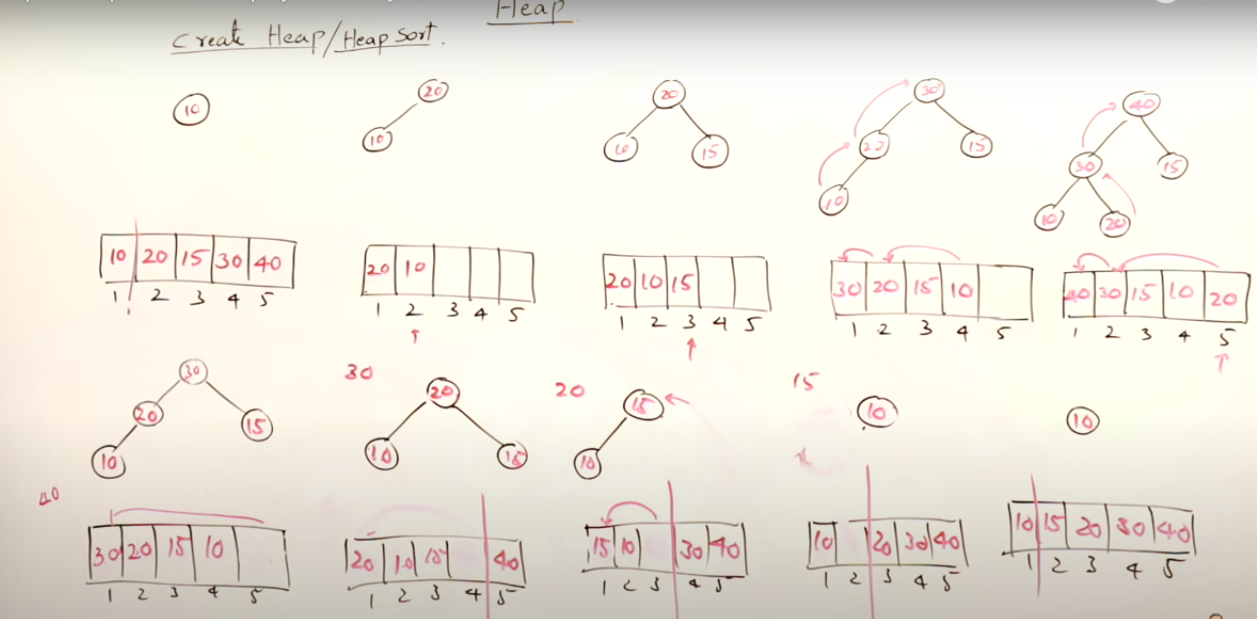 Heap
Create Heap/Heap Sort.
10
20
10
20
10 15
30
20 15
10
40
30 15
10 20
10 20 15 30 40
1 2 3 4 5
20 10
1 2 3 4 5
20 10 15
1 2 3 4 5
30 20 15 10
1 2 3 4 5
40 30 15 10 20
1 2 3 4 5
30
20 15
10
30
20
10 15
20
15
10
15
10
10
40
30 20 15 10
1 2 3 4 5
20 10 15 40
1 2 3 4 5
15 10 30 40
1 2 3 4 5
10 20 30 40
1 2 3 4 5
10 15 20 30 40
1 2 3 4 5